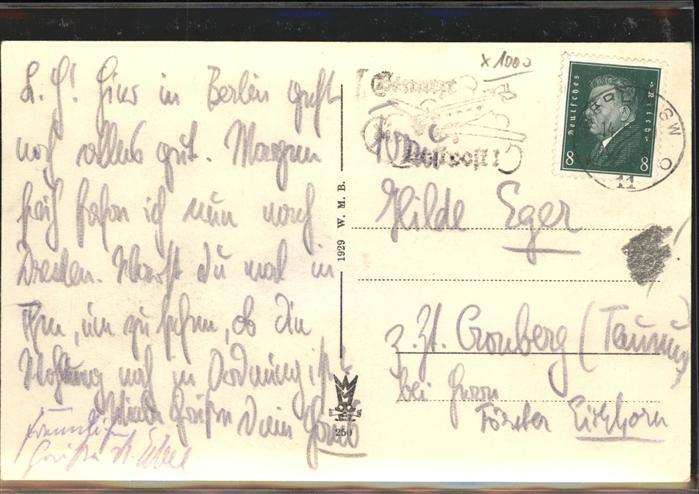 L. H! Hier in Berlin geht
noch alles gut. Morgen
früh fahre ich nun nach
Dresden. Warst du mal in
um zu sehen, ob die
Wohnung noch in Ordnung ist.
Viele Grüße Dein
Freundliche
Grüße
x 1000
Benutzt
die
Luftpost!
Deutsches Reich
8 8
SW
11
1929 W. M. B.
250
Hilde Eger
z. Zt. Cronberg (Taunus)
bei Herrn
Förster Eichhorn